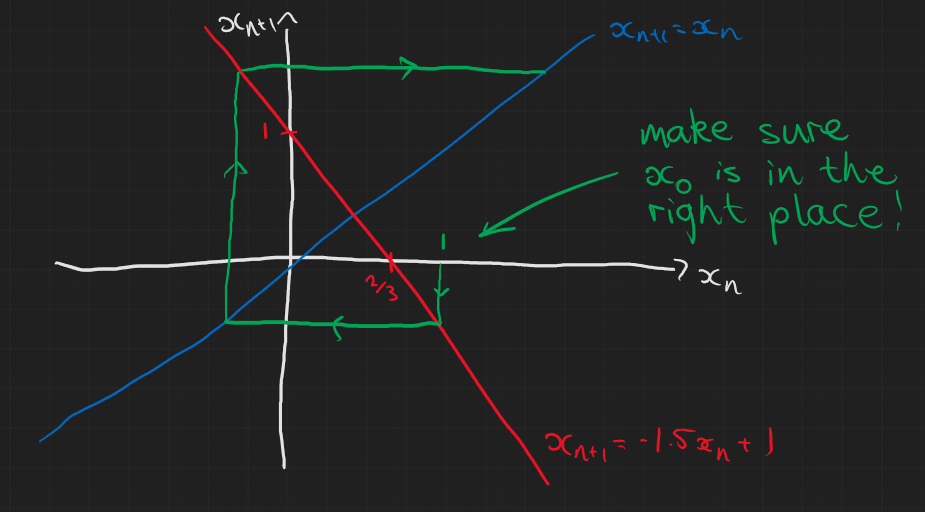 xₙ₊₁
xₙ₊₁ = xₙ
1
make sure
x₀ is in the
right place!
1
2/3
xₙ
xₙ₊₁ = -1.5xₙ + 1